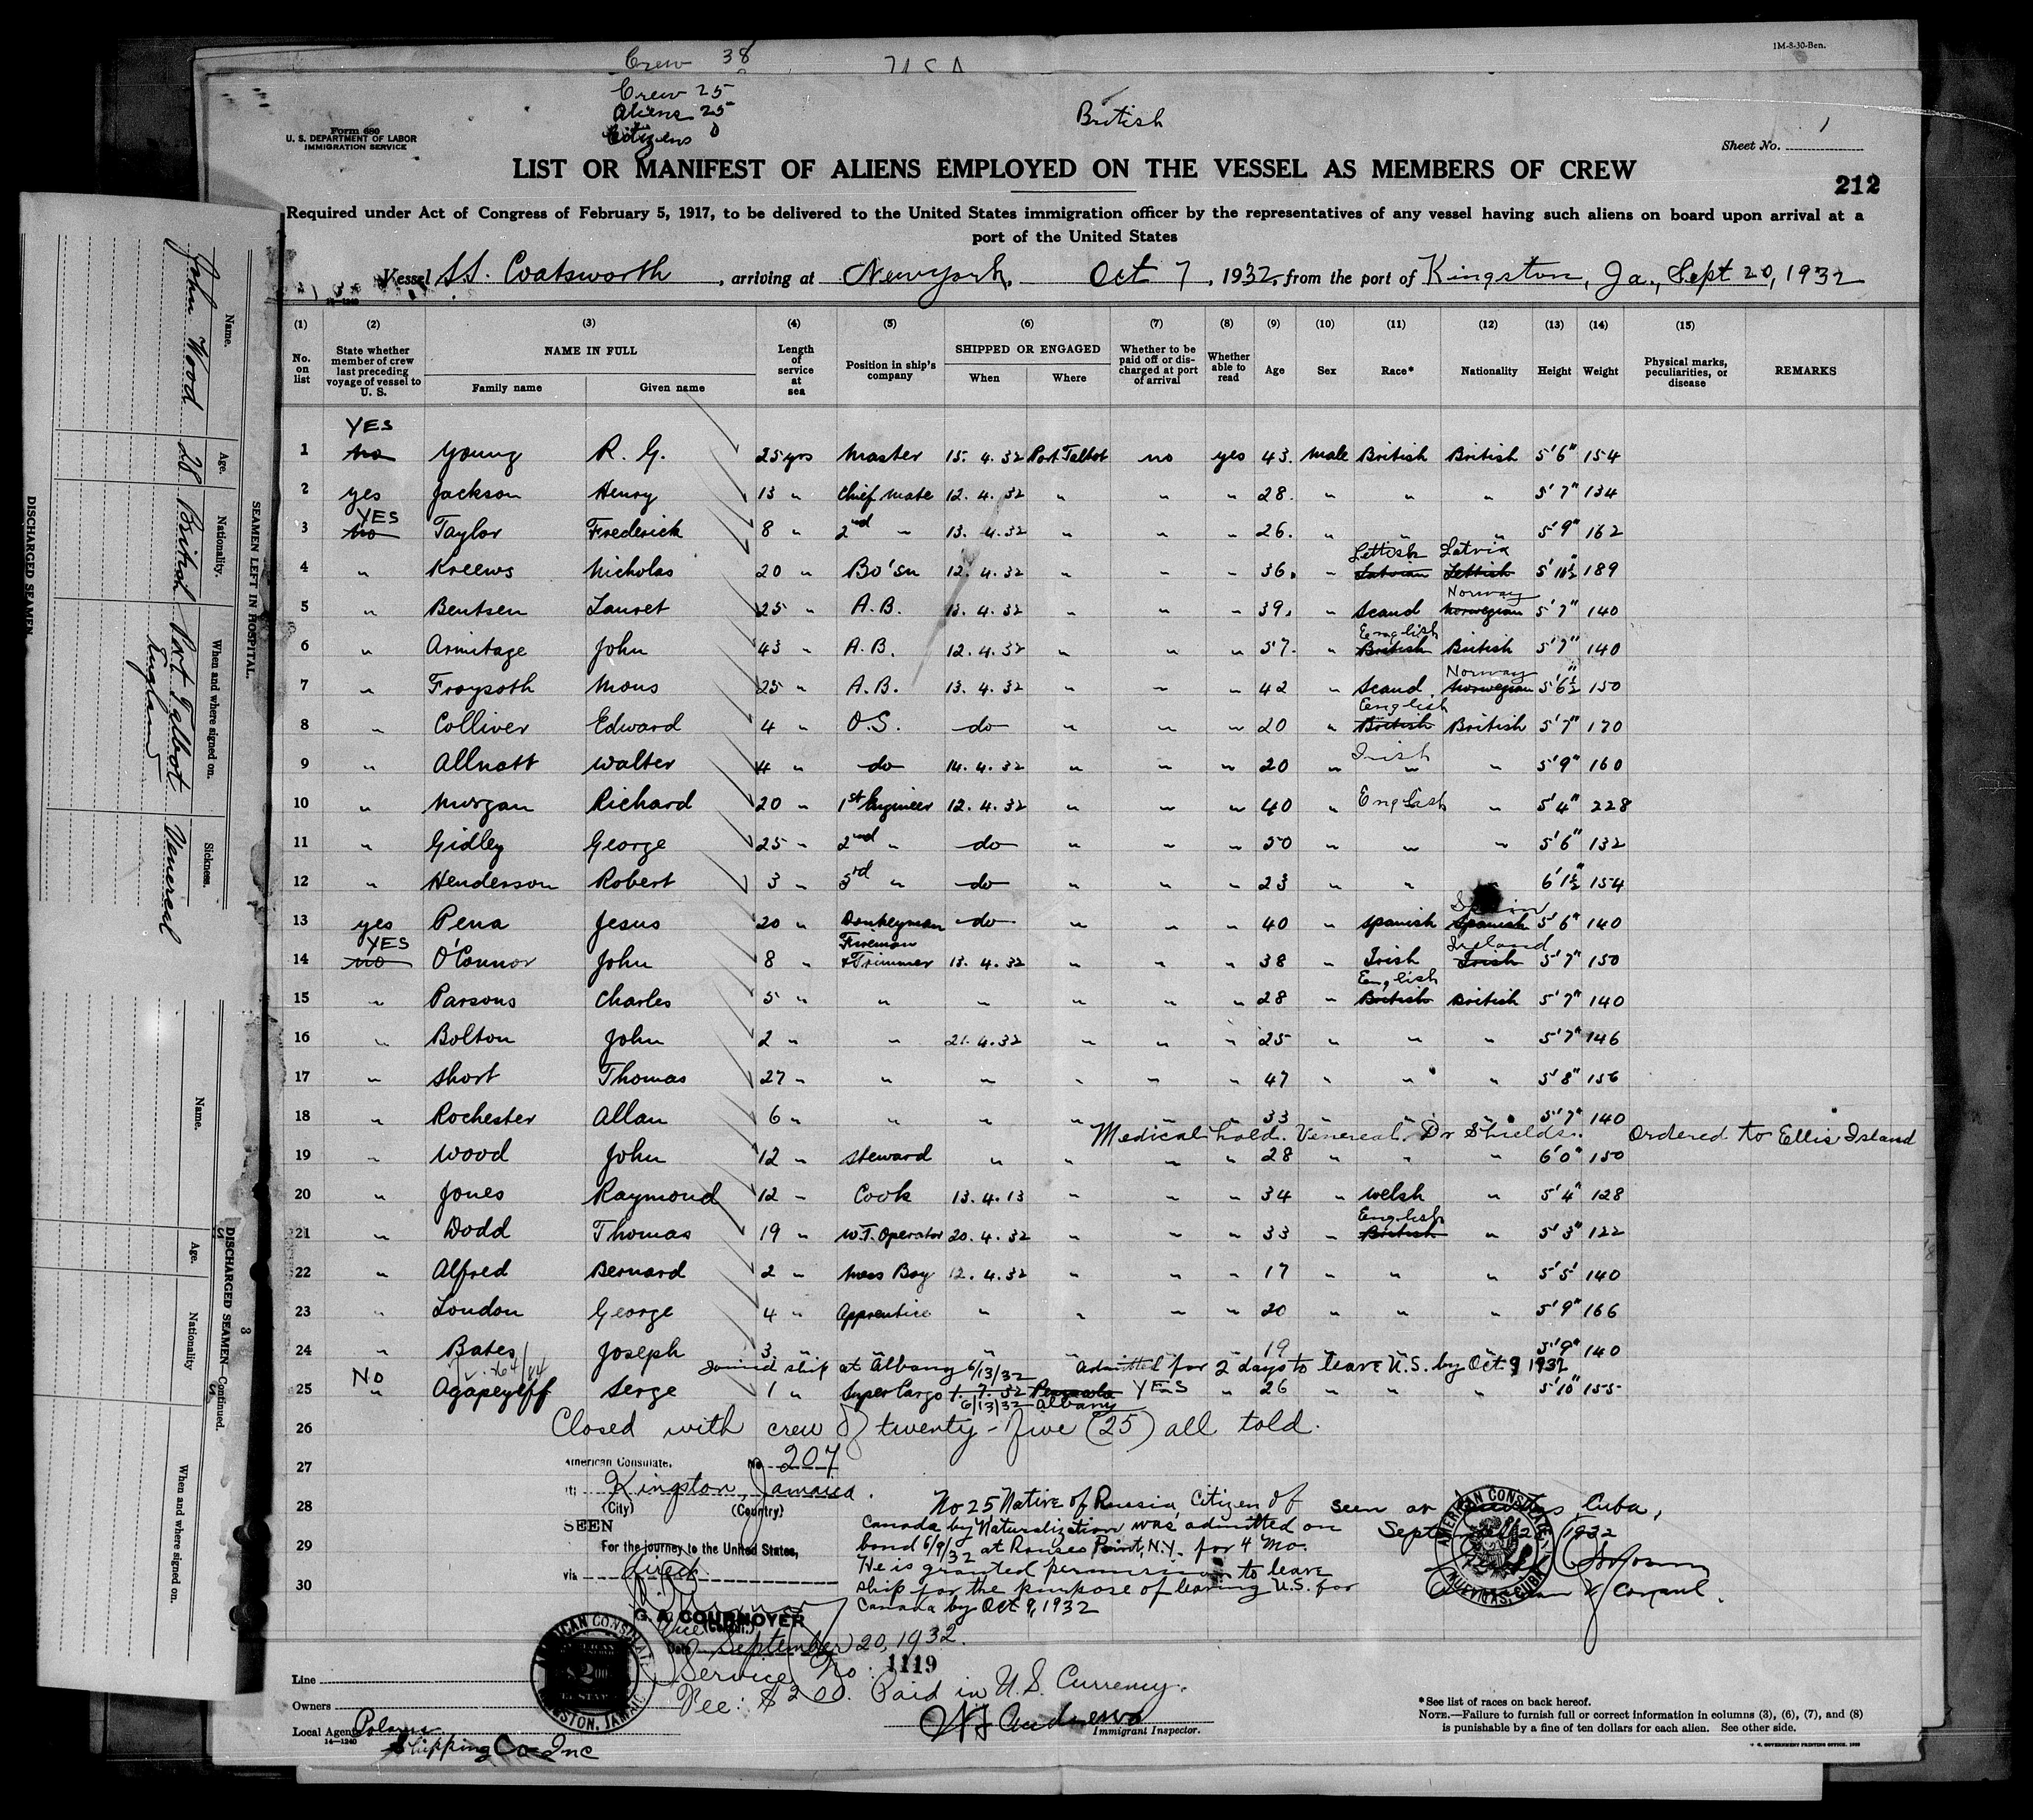 1M-8-30-Ben.
Crew 38
Crew 25
Aliens 25
Citizens 0
British
Form 680
U. S. DEPARTMENT OF LABOR
IMMIGRATION SERVICE
Sheet No. 1
LIST OR MANIFEST OF ALIENS EMPLOYED ON THE VESSEL AS MEMBERS OF CREW
212
Required under Act of Congress of February 5, 1917, to be delivered to the United States immigration officer by the representatives of any vessel having such aliens on board upon arrival at a
port of the United States
Vessel S.S. Coatsworth, arriving at New York, Oct 7, 1932, from the port of Kingston, Ja., Sept 20, 1932
(1) (2) (3) (4) (5) (6) (7) (8) (9) (10) (11) (12) (13) (14) (15)
No. on list
State whether member of crew last preceding voyage of vessel to U. S.
NAME IN FULL
Family name Given name
Length of service at sea
Position in ship's company
SHIPPED OR ENGAGED
When Where
Whether to be paid off or discharged at port of arrival
Whether able to read
Age Sex Race* Nationality Height Weight
Physical marks, peculiarities, or disease
REMARKS
YES
1 no Young R. G. 25 yrs Master 15. 4. 32 Port Talbot no yes 43. male British British 5'6" 154
2 yes Jackson Henry 13 " Chief Mate 12. 4. 32 " " " 28. " " " 5'7" 134
YES
3 no Taylor Frederick 8 " 2nd " 13. 4. 32 " " " 26. " " " 5'9" 162
Lettish Latvia
4 " Kreews Nicholas 20 " Bo'sn 12. 4. 32 " " " 36. " Latvian Lettish 5'10½" 189
Norway
5 " Bentsen Lauret 25 " A.B. 13. 4. 32 " " " 39. " Scand Norwegian 5'7" 140
English
6 " Armitage John 43 " A.B. 12. 4. 32 " " " 57. " British British 5'7" 140
Norway
7 " Froysoth Mons 25 " A.B. 13. 4. 32 " " " 42 " Scand. Norwegian 5'6½" 150
English
8 " Colliver Edward 4 " O.S. do " " " 20 " British British 5'7" 170
Irish
9 " Allnatt Walter 4 " do 14. 4. 32 " " " 20 " " " 5'9" 160
10 " Morgan Richard 20 " 1st Engineer 12. 4. 32 " " " 40 " English " 5'4" 228
11 " Gidley George 25 " 2nd " do " " " 50 " " " 5'6" 132
12 " Henderson Robert 3 " 3rd " do " " " 23 " " 6'1½" 154
Spain
13 yes Pena Jesus 20 " Donkeyman do " " " 40 " Spanish Spanish 5'6" 140
YES Fireman Ireland
14 no O'Connor John 8 " & Trimmer 13. 4. 32 " " " 38 " Irish Irish 5'7" 150
English
15 " Parsons Charles 5 " " " " " " 28 " British British 5'7" 140
16 " Bolton John 2 " " 21. 4. 32 " " " 25 " " " 5'7" 146
17 " Short Thomas 27 " " " " " " 47 " " " 5'8" 156
18 " Rochester Allan 6 " " " " " " 33 " " " 5'7" 140
Medical hold. Venereal. Dr Shields. Ordered to Ellis Island
19 " Wood John 12 " Steward " " " " 28 " " " 6'0" 150
20 " Jones Raymond 12 " Cook 13. 4. 13 " " " 34 " Welsh " 5'4" 128
English
21 " Dodd Thomas 19 " W.T. Operator 20. 4. 32 " " " 33 " British " 5'3" 122
22 " Alfred Bernard 2 " Mess Boy 12. 4. 32 " " " 17 " " " 5'5' 140
23 " London George 4 " Apprentice " " " " 20 " " " 5'9" 166
24 " Bates Joseph 3. " " " " " " 19 " " " 5'9" 140
Joined ship at Albany 6/13/32 Admitted for 2 days to leave U.S. by Oct 9 1932
No
25 " Agapeyeff Serge 1 " Super Cargo 1. 7. 32 Pensacola YES " 26 " " " 5'10" 155
6/13/32 Albany
26 Closed with crew of twenty-five (25) all told.
27
28
29
30
American Consulate, No. 207
at Kingston, Jamaica.
(City) (Country)
SEEN
For the journey to the United States,
via direct
G. A. COURNOYER
Vice Consul.
Date September 20, 1932.
Service No. 1119
Fee: $2.00. Paid in U.S. Currency.
AMERICAN CONSULATE
KINGSTON, JAMAICA
No 25 Native of Russia, Citizen of
Canada by Naturalization was admitted on
bond 6/9/32 at Rouses Point, N.Y. for 4 Mo.
He is granted permission to leave
ship for the purpose of leaving U.S. for
Canada by Oct 9, 1932
Seen at Nuevitas, Cuba,
September 1932
American Consul.
AMERICAN CONSULATE
NUEVITAS, CUBA
Line
Owners
Local Agents
Shipping Co Inc
14—1240
Andrews
Immigrant Inspector.
*See list of races on back hereof.
NOTE.—Failure to furnish full or correct information in columns (3), (6), (7), and (8)
is punishable by a fine of ten dollars for each alien. See other side.
U. S. GOVERNMENT PRINTING OFFICE
SEAMEN LEFT IN HOSPITAL.
Name. Age. Nationality. When and where signed on. Sickness.
John Wood 28 British Port Talbot England Venereal
DISCHARGED SEAMEN.
DISCHARGED SEAMEN—Continued.
Name. Age. Nationality When and where signed on.